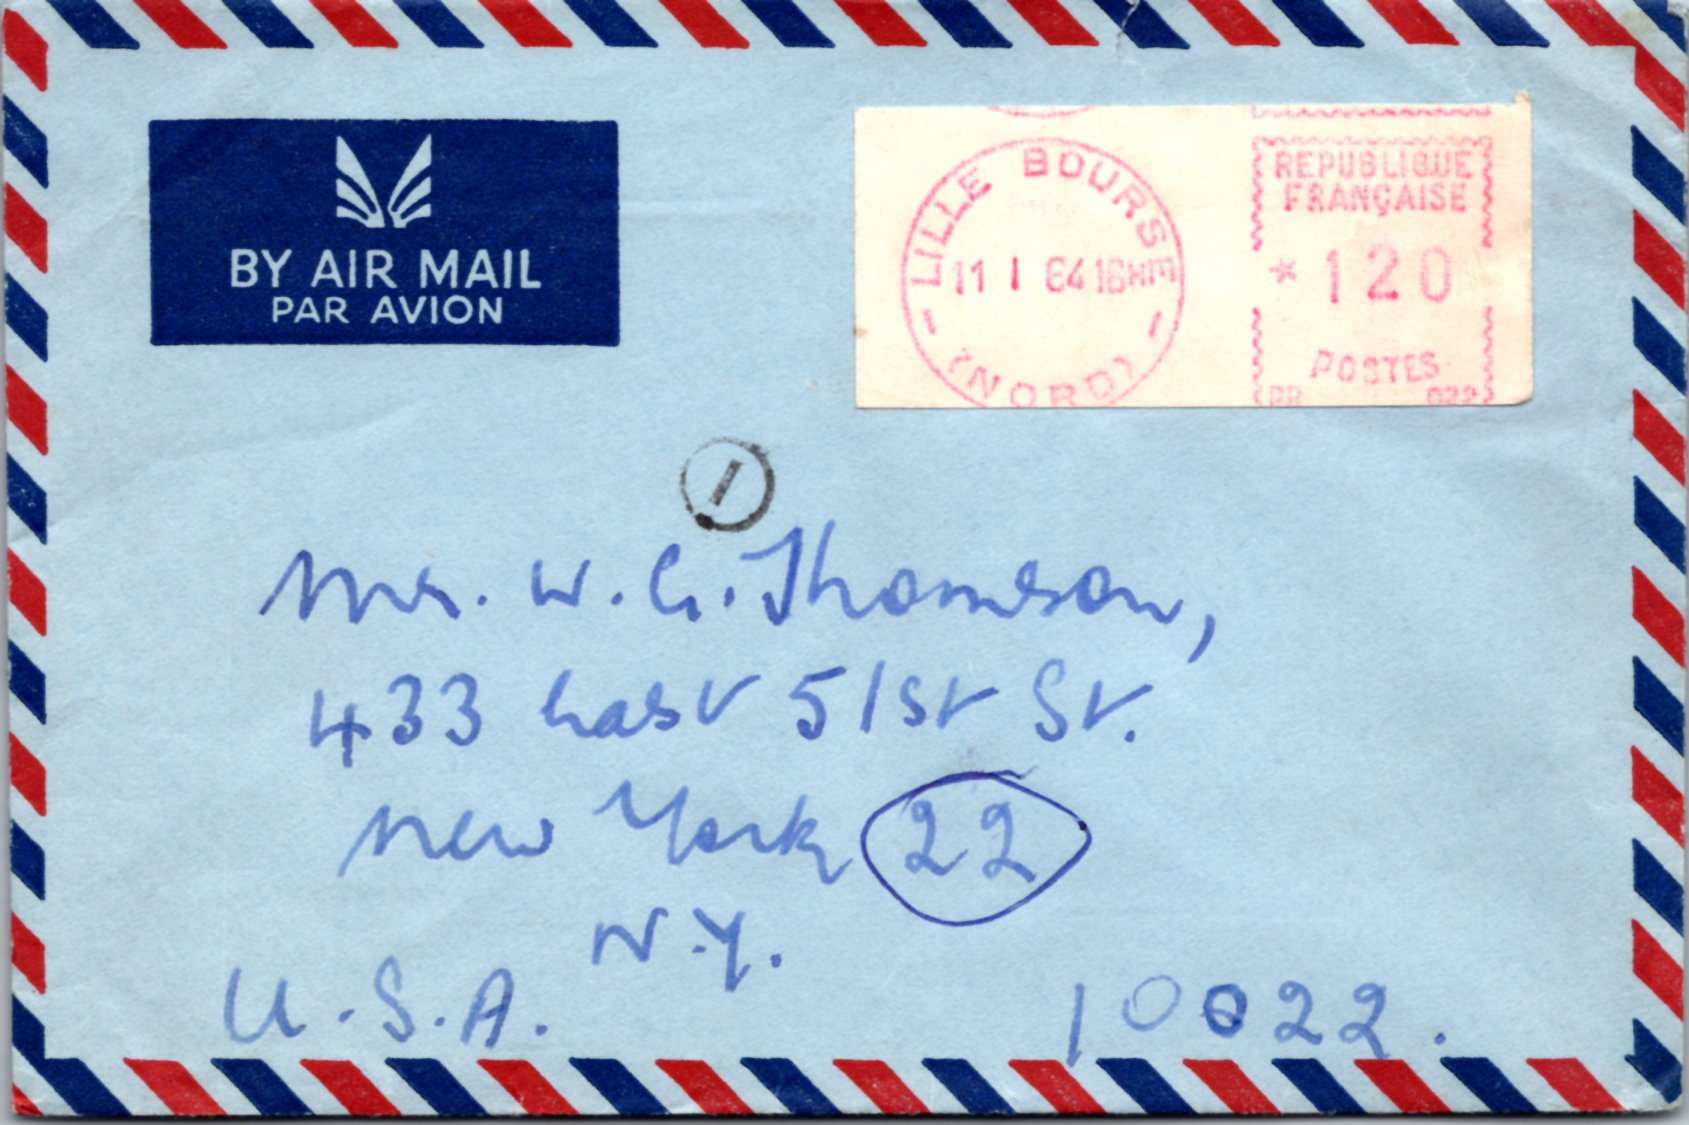 BY AIR MAIL
PAR AVION
LILLE BOURSE
11 1 64 16H
(NORD)
REPUBLIQUE
FRANÇAISE
* 120
POSTES
022
1
Mr. W. G. Thomson,
433 East 51st St.
New York 22
N.Y.
U.S.A. 10022.